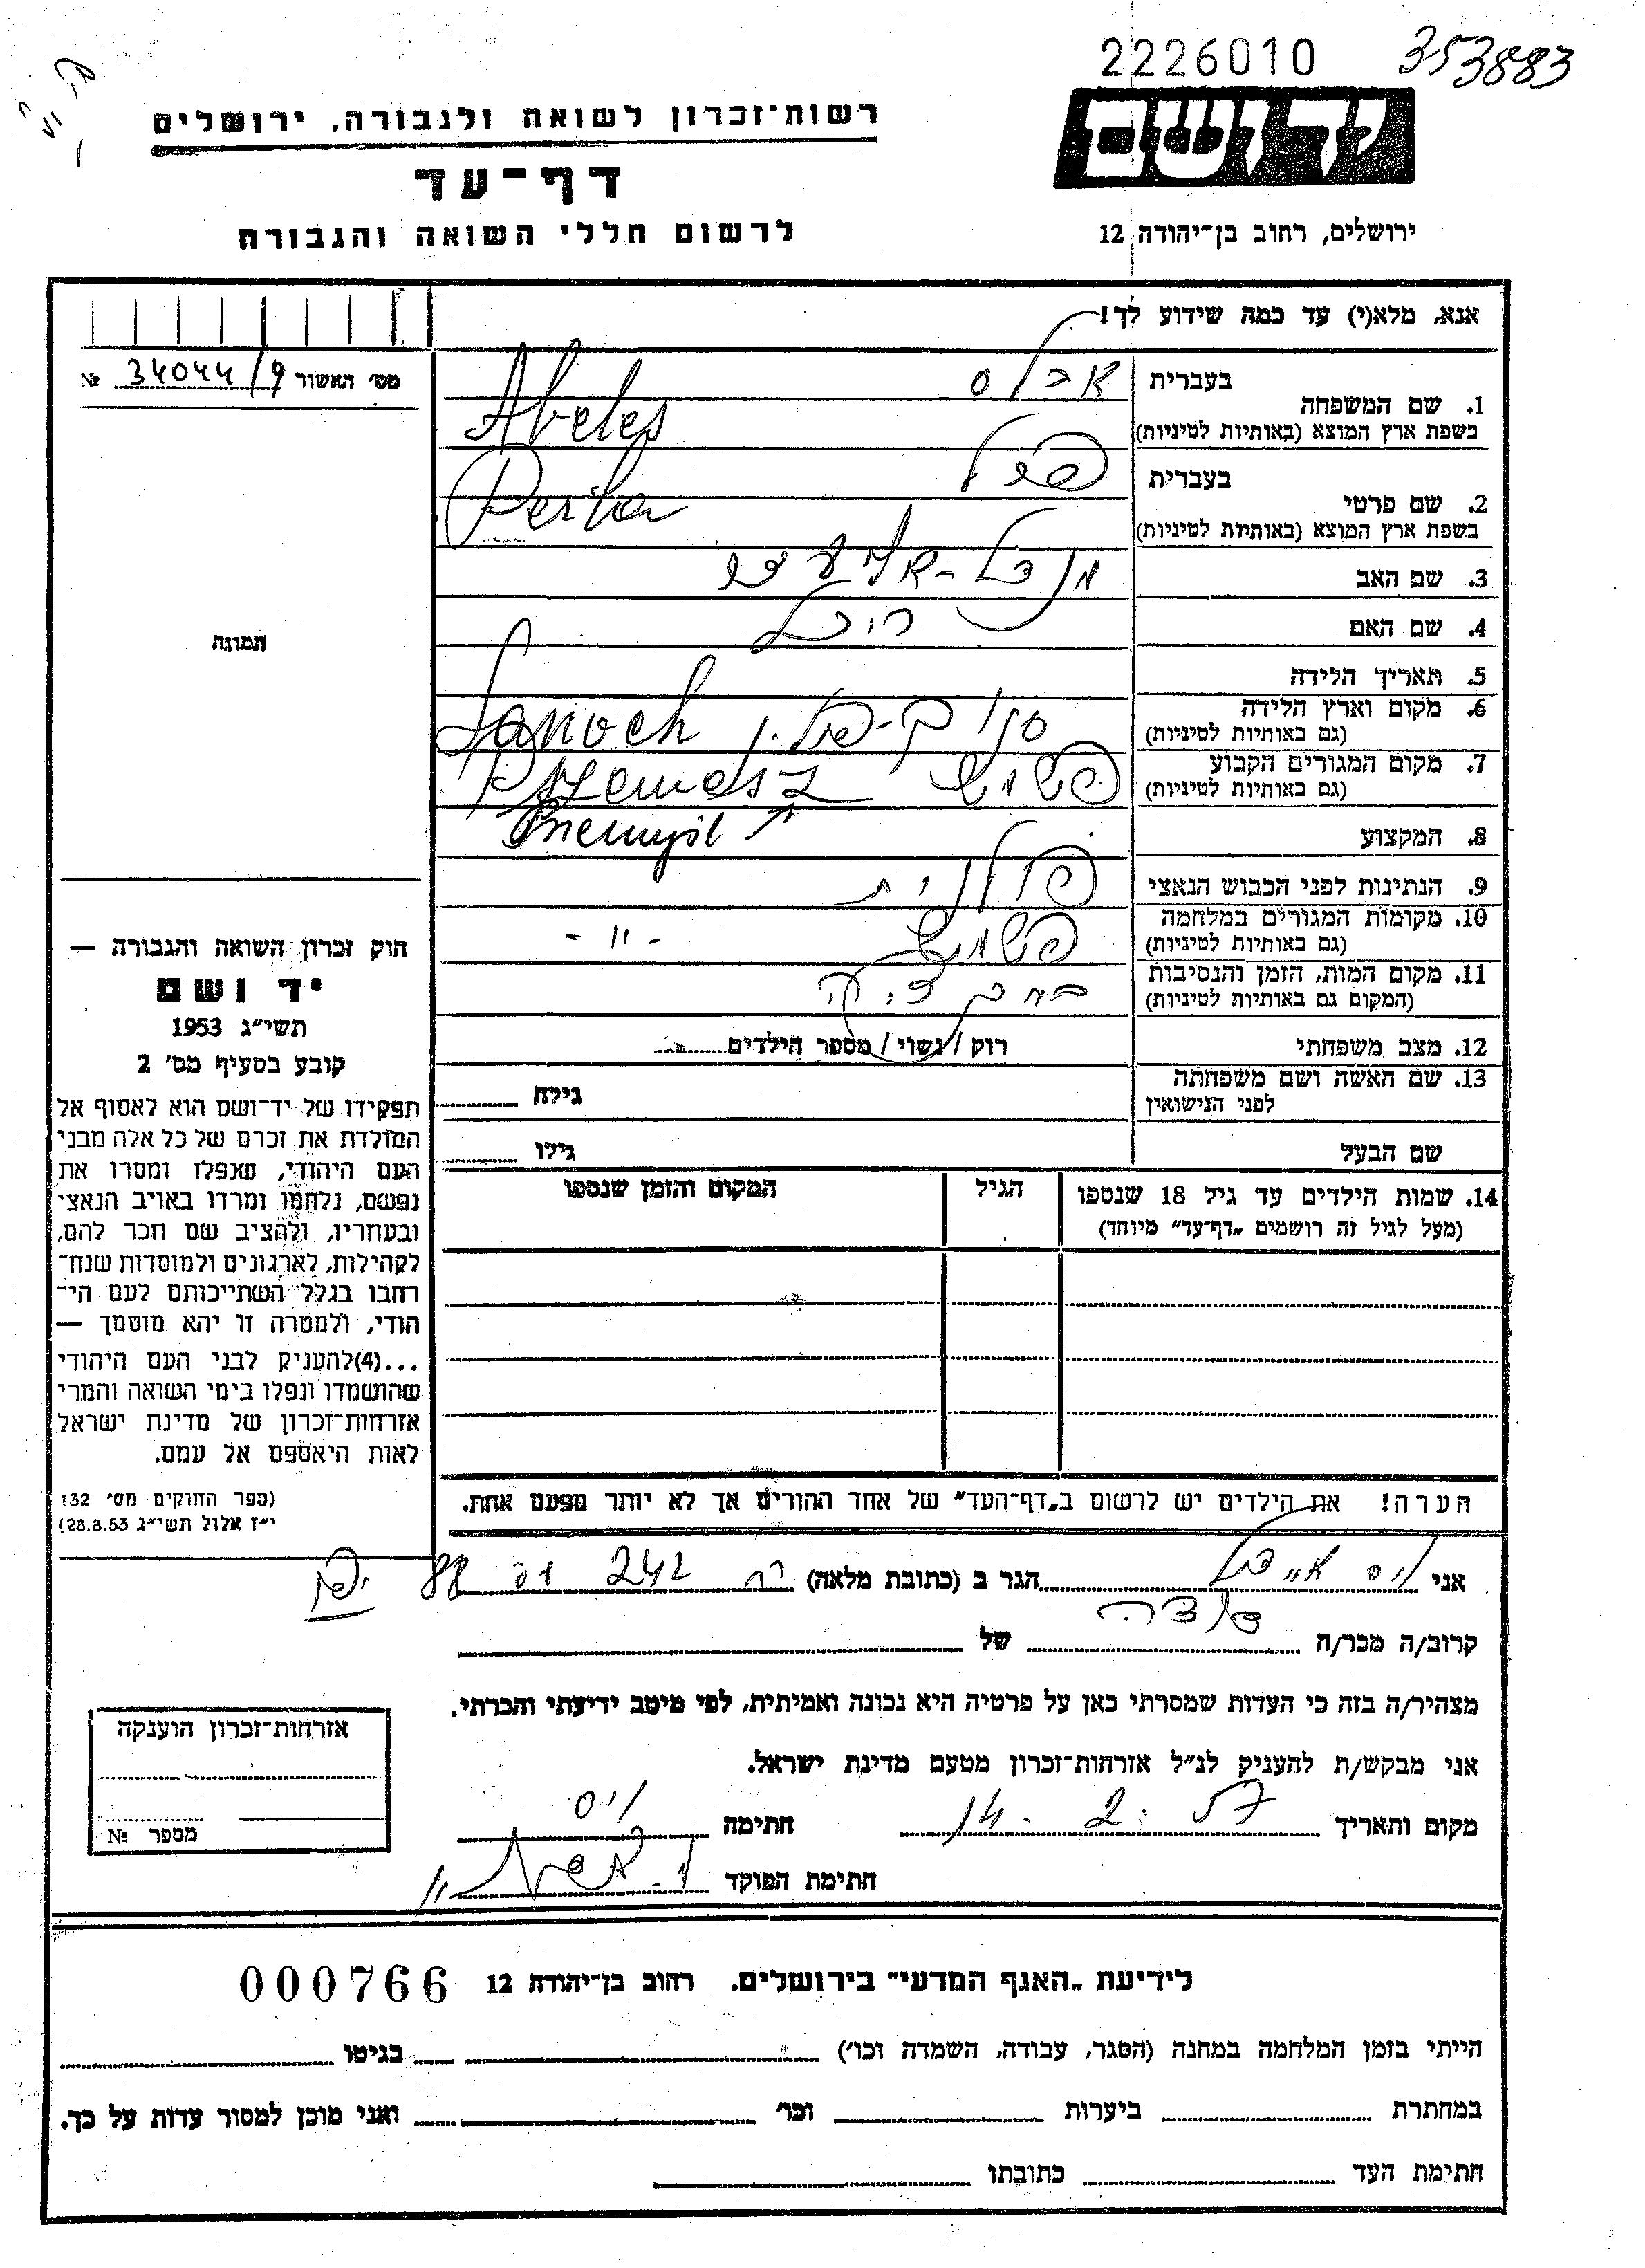 2226010 353883
יד ושם
רשות־זכרון לשואה ולגבורה, ירושלים
דף־עד
לרשום חללי השואה והגבורה
ירושלים, רחוב בן־יהודה 12
אנא, מלא(י) עד כמה שידוע לך!
מס׳ האשור 34044/9 №
תמונה
1. שם המשפחה בעברית אבלס
בשפת ארץ המוצא (באותיות לטיניות) Abeles
2. שם פרטי בעברית פרל
בשפת ארץ המוצא (באותיות לטיניות) Perla
3. שם האב מנדל-
4. שם האם רוכל
5. תאריך הלידה
6. מקום וארץ הלידה סנוק-פולין Sanoch
(גם באותיות לטיניות)
7. מקום המגורים הקבוע פשמישל
(גם באותיות לטיניות)
8. המקצוע
9. הנתינות לפני הכבוש הנאצי פולנית
10. מקומות המגורים במלחמה פשמישל - 〃 -
(גם באותיות לטיניות)
11. מקום המות, הזמן והנסיבות
(המקום גם באותיות לטיניות)
12. מצב משפחתי רוק / נשוי / מספר הילדים
13. שם האשה ושם משפחתה
לפני הנישואין גילה
שם הבעל גילו
14. שמות הילדים עד גיל 18 שנספו הגיל המקום והזמן שנספו
(מעל לגיל זה רושמים „דף־עד״ מיוחד)
הערה! את הילדים יש לרשום ב„דף־העד״ של אחד ההורים אך לא יותר מפעם אחת.
חוק זכרון השואה והגבורה —
יד ושם
תשי״ג 1953
קובע בסעיף מס׳ 2
תפקידו של יד־ושם הוא לאסוף אל
המולדת את זכרם של כל אלה מבני
העם היהודי, שנפלו ומסרו את
נפשם, נלחמו ומרדו באויב הנאצי
ובעוזריו, ולהציב שם וזכר להם,
לקהילות, לארגונים ולמוסדות שנח־
רבו בגלל השתייכותם לעם הי־
הודי, ולמטרה זו יהא מוסמך —
...(4)להעניק לבני העם היהודי
שהושמדו ונפלו בימי השואה והמרי
אזרחות־זכרון של מדינת ישראל
לאות היאספם אל עמם.
(ספר החוקים מס׳ 132
י״ז אלול תשי״ג 28.8.53)
אני וייס אידל הגר ב (כתובת מלאה) רח 242 מס 88 יפו
קרוב/ה מכר/ה דודה של
מצהיר/ה בזה כי העדות שמסרתי כאן על פרטיה היא נכונה ואמיתית, לפי מיטב ידיעתי והכרתי.
אני מבקש/ת להעניק לנ״ל אזרחות־זכרון מטעם מדינת ישראל.
מקום ותאריך 14. 2. 57 חתימה וייס
חתימת הפוקד
אזרחות־זכרון הוענקה
מספר №
לידיעת „האגף המדעי״ בירושלים. רחוב בן־יהודה 12 000766
הייתי בזמן המלחמה במחנה (הסגר, עבודה, השמדה וכו׳) בגיטו
במחתרת ביערות וכו׳ ואני מוכן למסור עדות על כך.
חתימת העד כתובתו